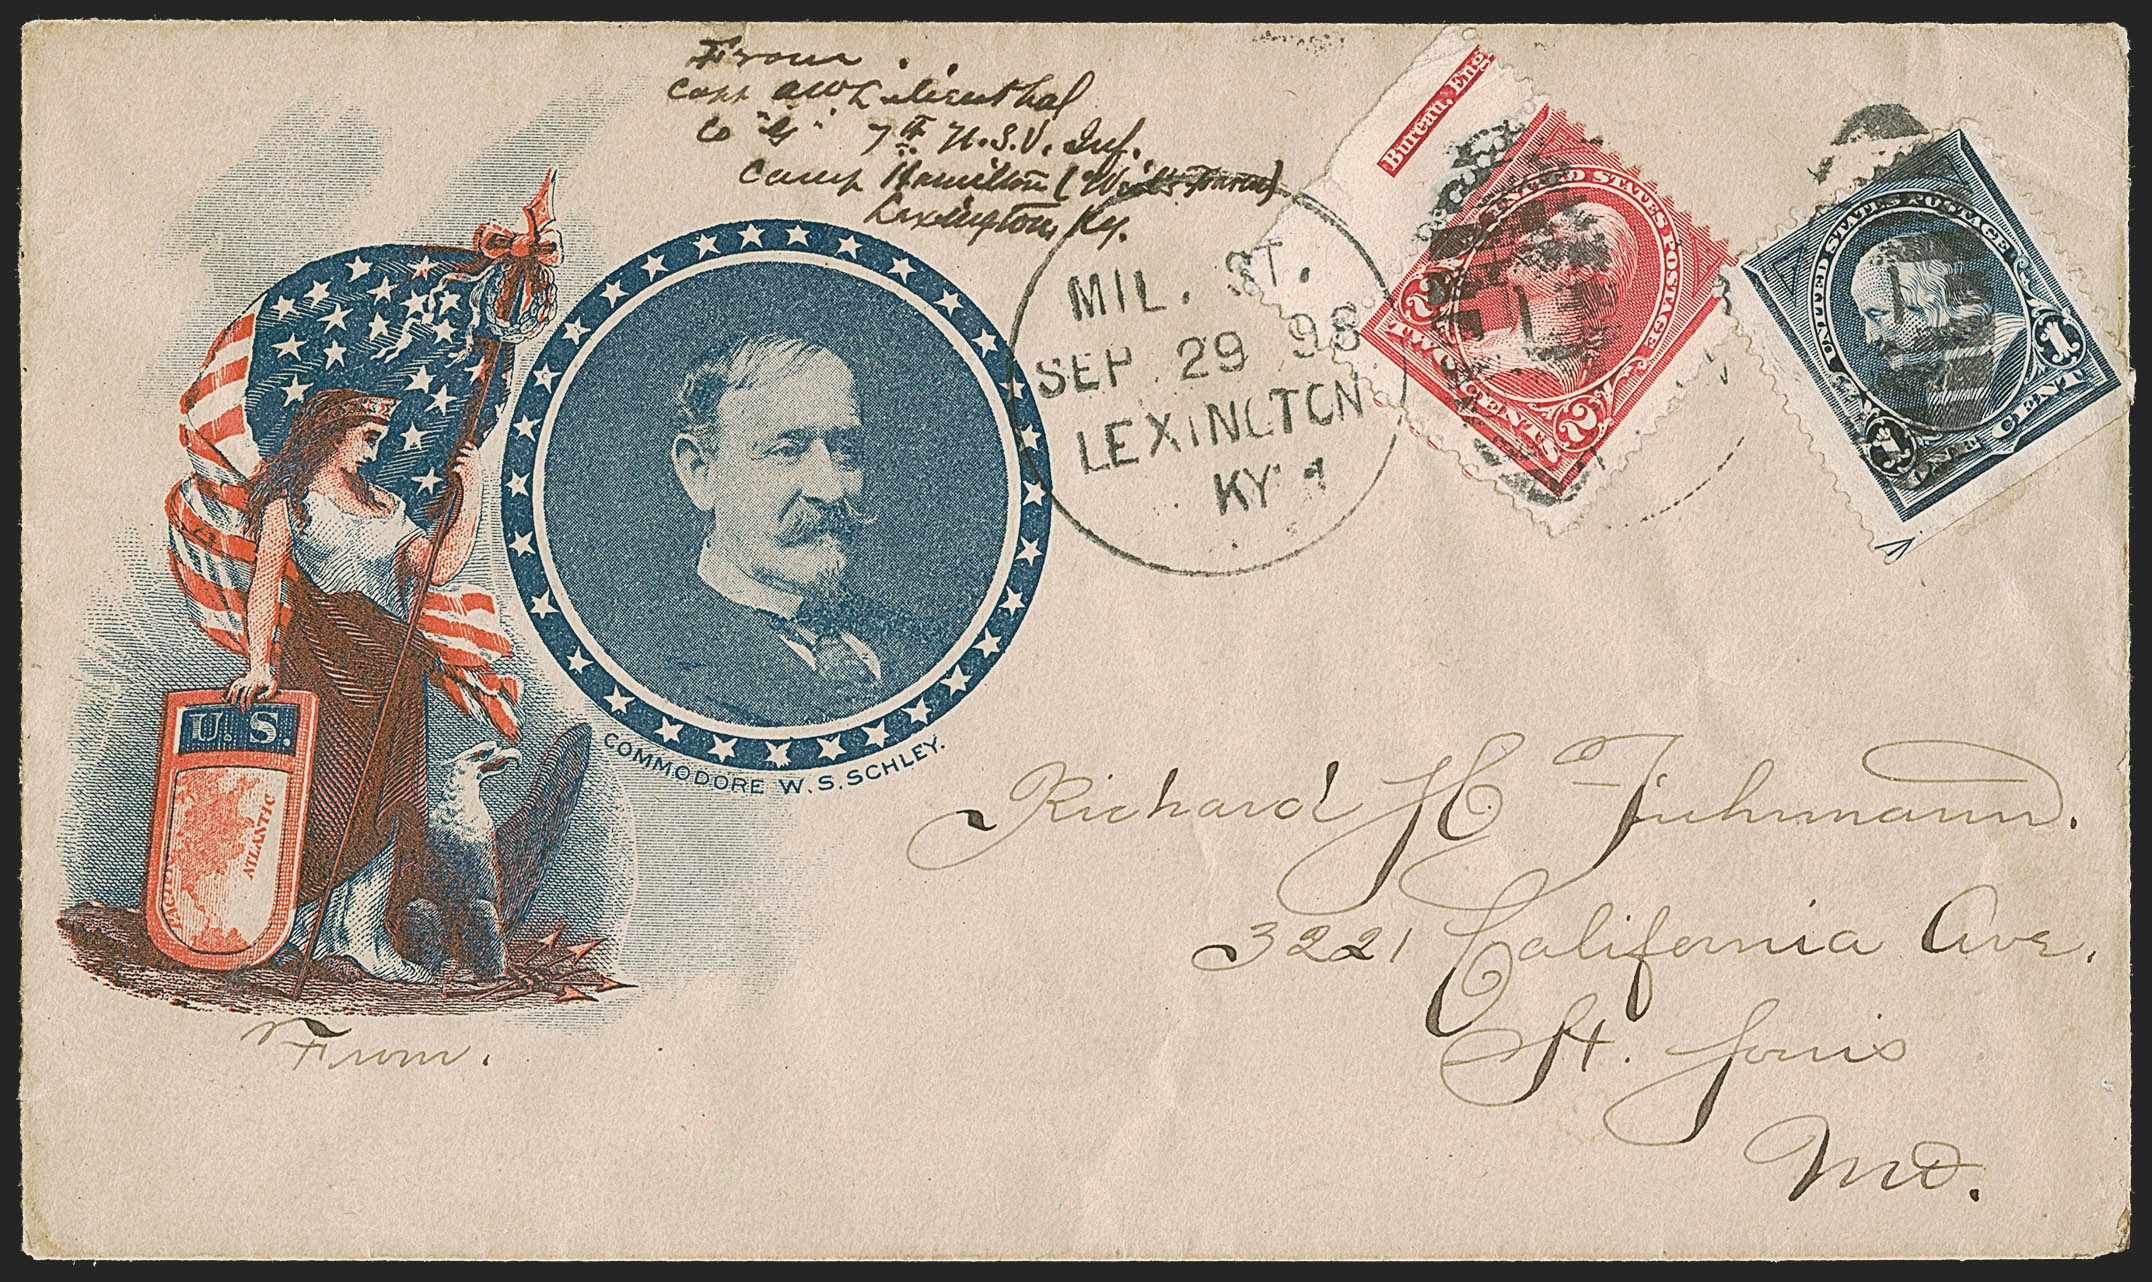 From
Capt AW Lilienthal
Co "G" 7th U.S.V. Inf.
Camp Hamilton (Weil's Farm)
Lexington, Ky.
MIL. ST.
SEP 29 98
LEXINGTON
KY 1
Bureau, Eng
UNITED STATES POSTAGE
2 2
TWO CENTS
1
UNITED STATES POSTAGE
1
1 1
ONE CENT
U.S.
PACIFIC
ATLANTIC
COMMODORE W.S. SCHLEY.
From.
Richard H Fuhrmann.
3221 California Ave.
St. Louis
Mo.